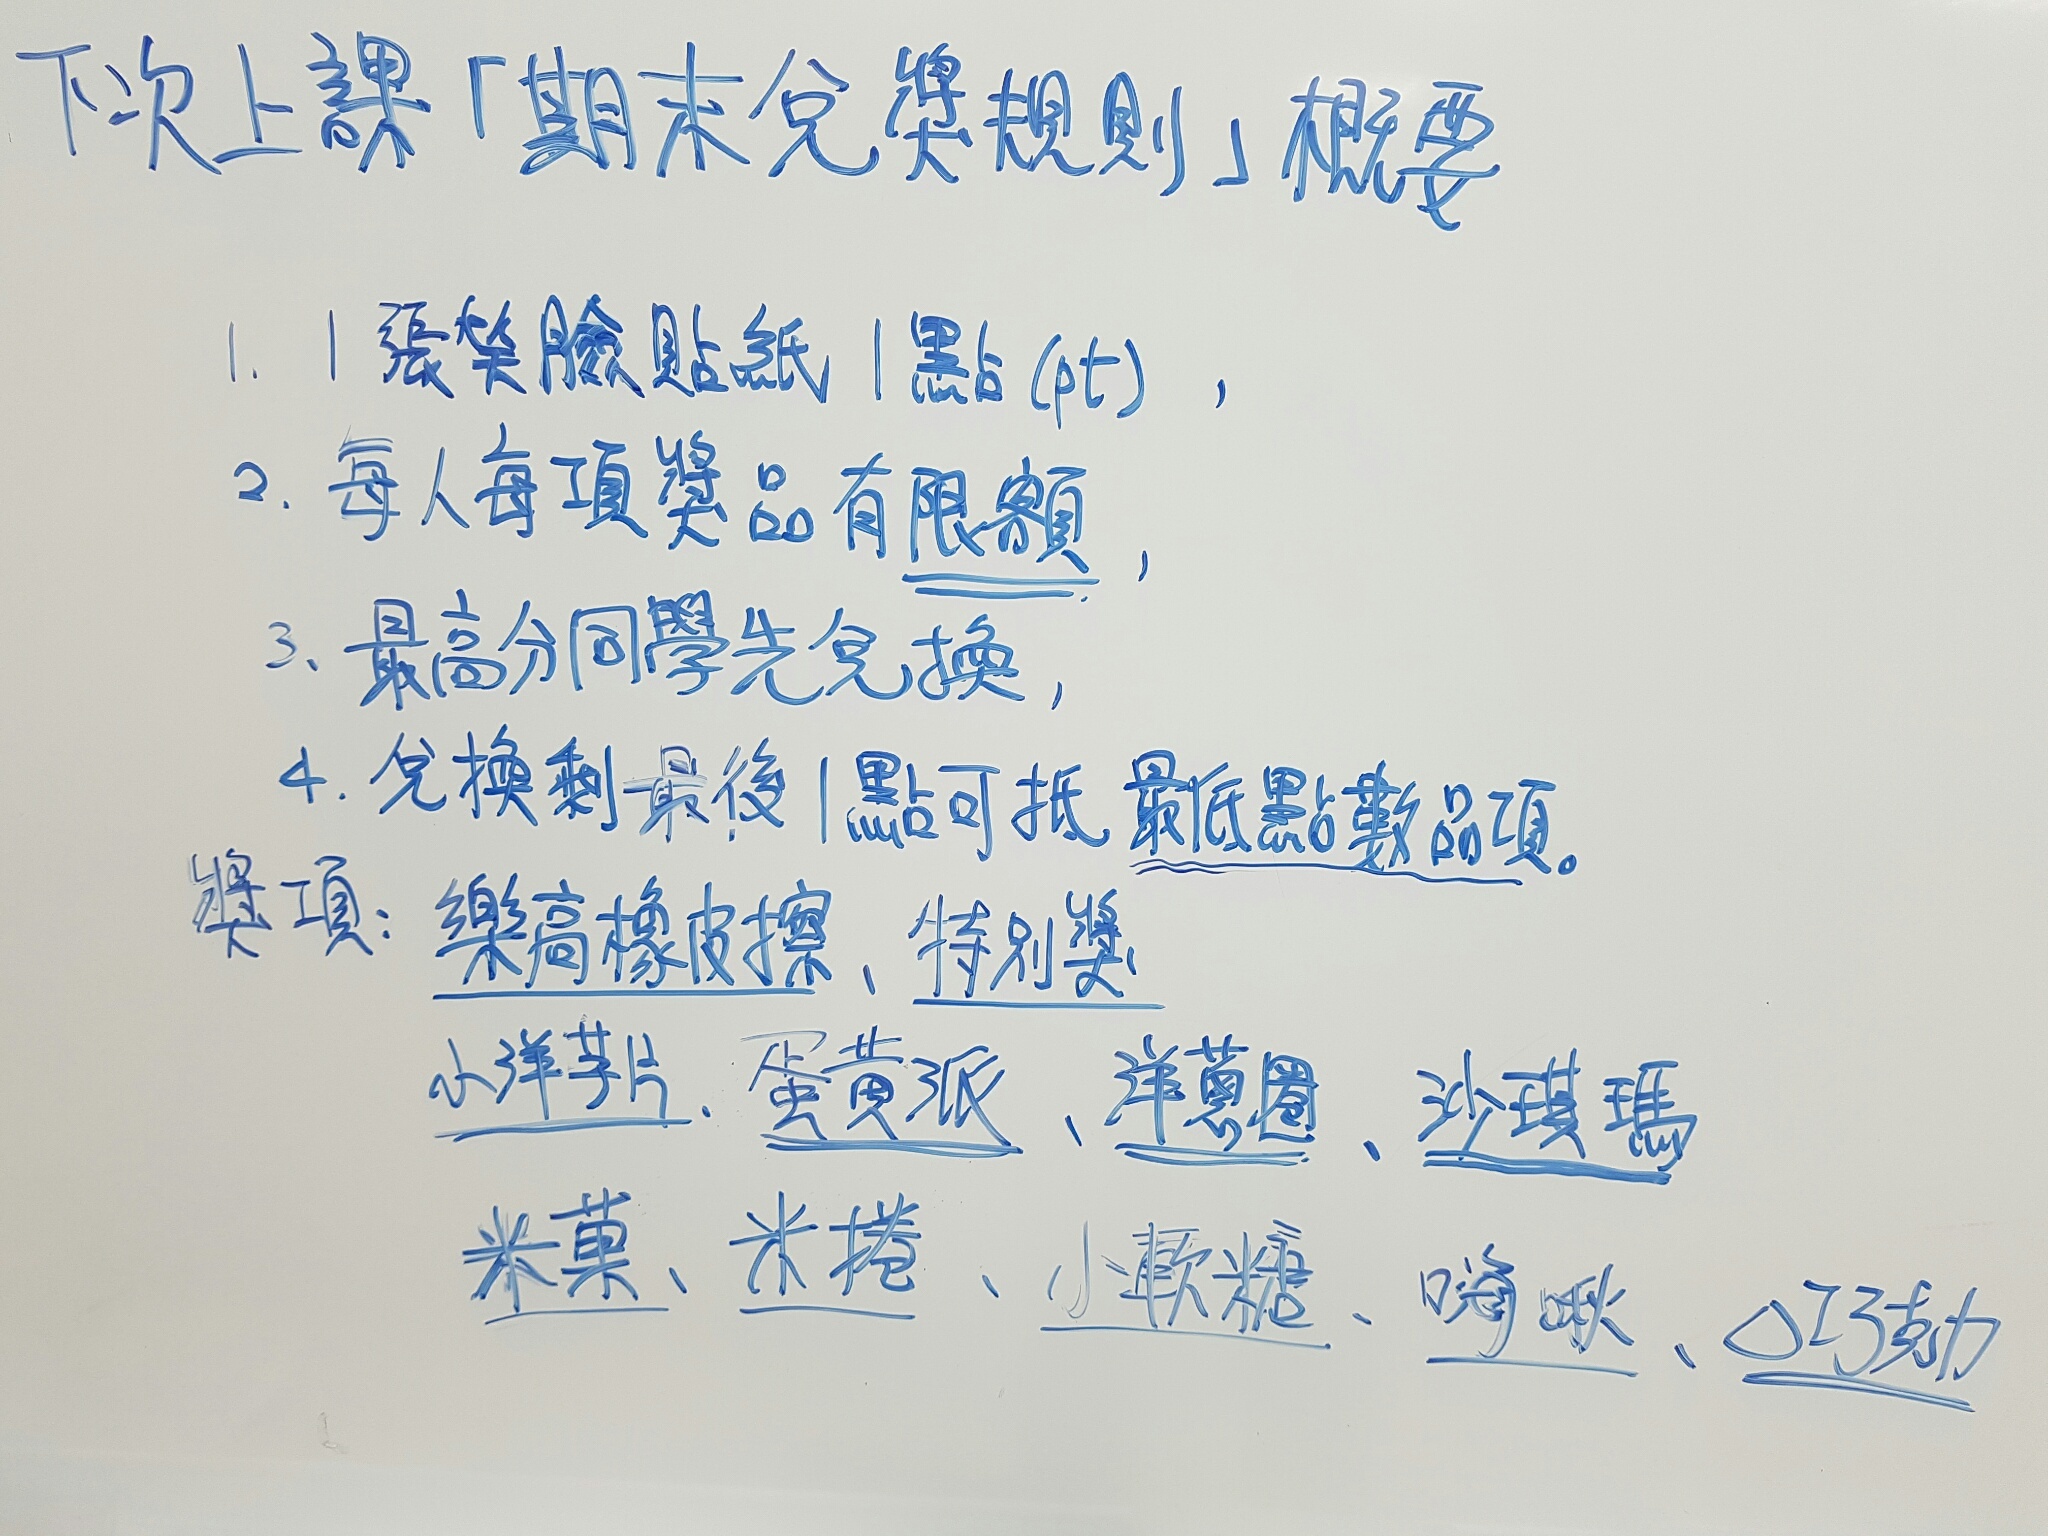 下次上課「期末兌獎規則」概要
1. 1張笑臉貼紙1點(pt),
2. 每人每項獎品有限額,
3、最高分同學先兌換,
4. 兌換剩最後1點可抵最低點數品項。
獎項：樂高橡皮擦、特別獎
小洋芋片、蛋黃派、洋蔥圈、沙琪瑪
米菓、米捲、小軟糖、嗨啾、巧克力